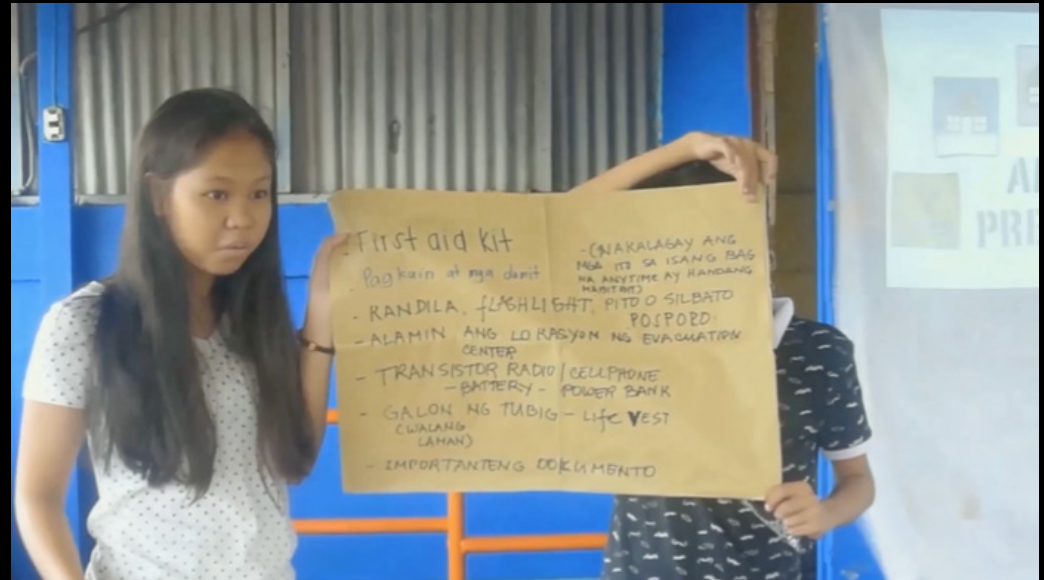 - First aid kit
- Pagkain at mga damit
- (NAKALAGAY ANG
MGA ITO SA ISANG BAG
NA ANYTIME AY HANDANG
- KANDILA, fLASHLIGHT, PITO O SILBATO
POSPORO
- ALAMIN ANG LOKASYON NG EVACUATION
CENTER
- TRANSISTOR RADIO/CELLPHONE
- BATTERY - POWER BANK
- GALON NG TUBIG - Life VEST
(WALANG
LAMAN)
- IMPORTANTENG DOKUMENTO